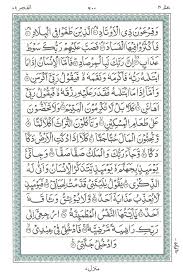 وَفِرْعَوْنَ ذِي الْأَوْتَادِ ۝ الَّذِينَ طَغَوْا فِي الْبِلَادِ ۝
فَأَكْثَرُوا فِيهَا الْفَسَادَ ۝ فَصَبَّ عَلَيْهِمْ رَبُّكَ سَوْطَ
عَذَابٍ ۝ إِنَّ رَبَّكَ لَبِالْمِرْصَادِ ۝ فَأَمَّا الْإِنْسَانُ إِذَا مَا
ابْتَلٰهُ رَبُّهُ فَأَكْرَمَهُ وَنَعَّمَهُ فَيَقُولُ رَبِّي أَكْرَمَنِ ۝
وَأَمَّا إِذَا مَا ابْتَلٰهُ فَقَدَرَ عَلَيْهِ رِزْقَهُ فَيَقُولُ رَبِّي
أَهَانَنِ ۝ كَلَّا بَلْ لَا تُكْرِمُونَ الْيَتِيمَ ۝ وَلَا تَحٰضُّونَ
عَلٰى طَعَامِ الْمِسْكِينِ ۝ وَتَأْكُلُونَ التُّرَاثَ أَكْلًا لَمًّا ۝
وَتُحِبُّونَ الْمَالَ حُبًّا جَمًّا ۝ كَلَّا إِذَا دُكَّتِ الْأَرْضُ دَكًّا
دَكًّا ۝ وَجَاءَ رَبُّكَ وَالْمَلَكُ صَفًّا صَفًّا ۝ وَجِايءَ
يَوْمَئِذٍ بِجَهَنَّمَ يَوْمَئِذٍ يَتَذَكَّرُ الْإِنْسَانُ وَأَنّٰى لَهُ
الذِّكْرٰى ۝ يَقُولُ يٰلَيْتَنِي قَدَّمْتُ لِحَيَاتِي ۝ فَيَوْمَئِذٍ
لَا يُعَذِّبُ عَذَابَهُ أَحَدٌ ۝ وَلَا يُوثِقُ وَثَاقَهُ
أَحَدٌ ۝ يٰأَيَّتُهَا النَّفْسُ الْمُطْمَئِنَّةُ ۝ ارْجِعِي إِلٰى
رَبِّكِ رَاضِيَةً مَرْضِيَّةً ۝ فَادْخُلِي فِي عِبٰدِي ۝
وَادْخُلِي جَنَّتِي ۝